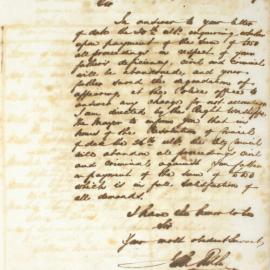 Sir
In answer to your letter
of date the 30th ulto. enquiring whether
upon payment of the sum of £50
all proceedings in respect of your
father's deficiency, civil and criminal
will be abandoned and your
father saved the degradation of
appearing at the Police Office to
answer any charge for not accounting
I am directed by the Right Worshipful
the Mayor to inform you that in
terms of the Resolution of Council
of date the 26th ulto. the City Council
will abandon all proceedings civil
and criminal against your father
on payment of the sum of £50
which is in full satisfaction of
all demands.
I have the honor to be
Sir
Your most obedient Servant,